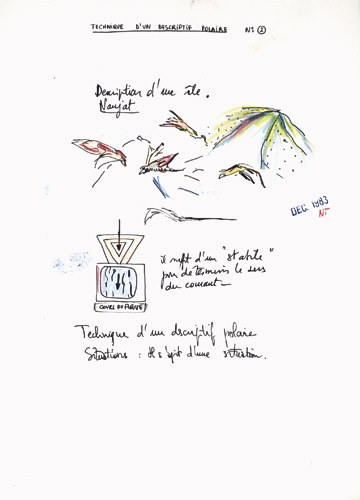 TECHNIQUE D'UN DESCRIPTIF POLAIRE N°: 2
Description d'une île.
Naujat
DEC. 1983
NT
il suffit d'un "stabile"
pour déterminer le sens
du courant
COURS DU FLEUVE
Technique d'un descriptif polaire
Situations : Il s'agit d'une situation.